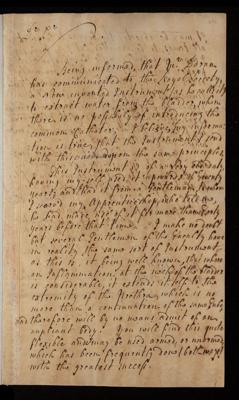 Being informed, that Mr.
has communicated to the Royal Society,
a New invented Instrument (as he calls it)
to extract water from the Bladder, when
there is no possibility of introducing the
common Catheter; I believe my informa-
tion is true, that the Instrument is
with this upon the same principles.
This Instrument is of a very old date,
having my self used it upwards of twenty
years, and had it from a Gentleman, whom
I served my Apprenticeship, who told me,
he had made use of it for more than forty
years before that time. I make no doubt
but several Gentlemen of the Faculty have
in reality the same sort of Instrument
as this is: it being well known, that where
an Inflammation, at the neck of the Bladder
is considerable, it extends it self to the
extremity of the Urethra, which is no
more than a continuation of the same body,
and therefore will by no means admit of an
unpliant body. You will find this quite
flexible and may be used armed, or unarmed
which has been frequently done both ways
with the greatest success.